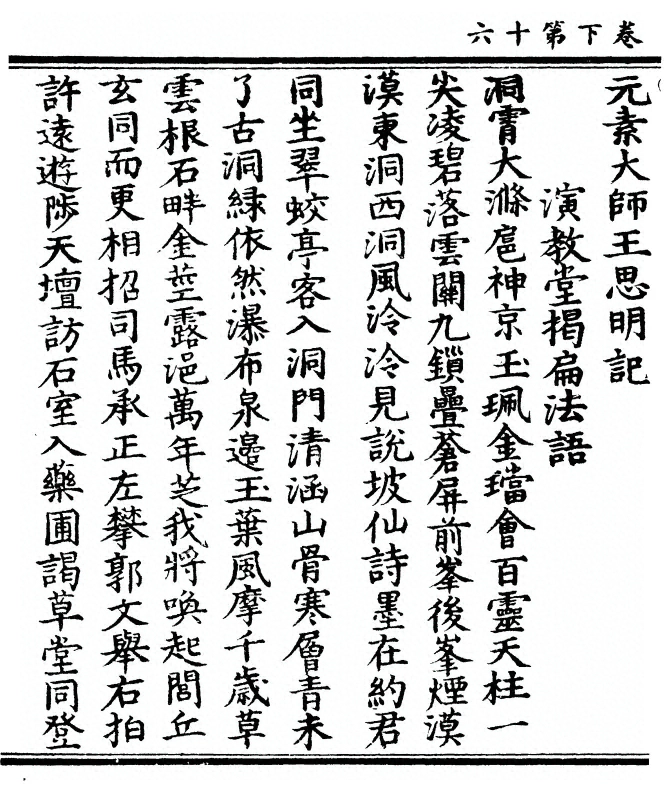 卷下第十六
元素大師王思明記
演教堂揭扁法語
洞霄大滌扈神京玉珮金璫會百靈天柱一
尖凌碧落雲關九鎖疊蒼屏前峯後峯煙漠
漠東洞西洞風泠泠見說坡仙詩墨在約君
同坐翠蛟亭客入洞門清涵山骨寒層青未
了古洞綠依然瀑布泉邊玉葉風摩千歲草
雲根石畔金莖露浥萬年芝我將喚起閭丘
玄同而更相招司馬承正左攀郭文舉右拍
許遠遊陟天壇訪石室入藥圃謁草堂同登